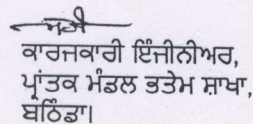 ਕਾਰਜਕਾਰੀ ਇੰਜੀਨੀਅਰ,
ਪ੍ਰਾਂਤਕ ਮੰਡਲ ਭਤੇਮ ਸ਼ਾਖਾ,
ਬਠਿੰਡਾ।